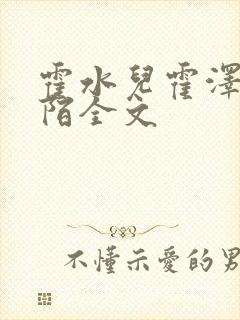 霍水兒霍澤
陌全文
不懂示愛的男